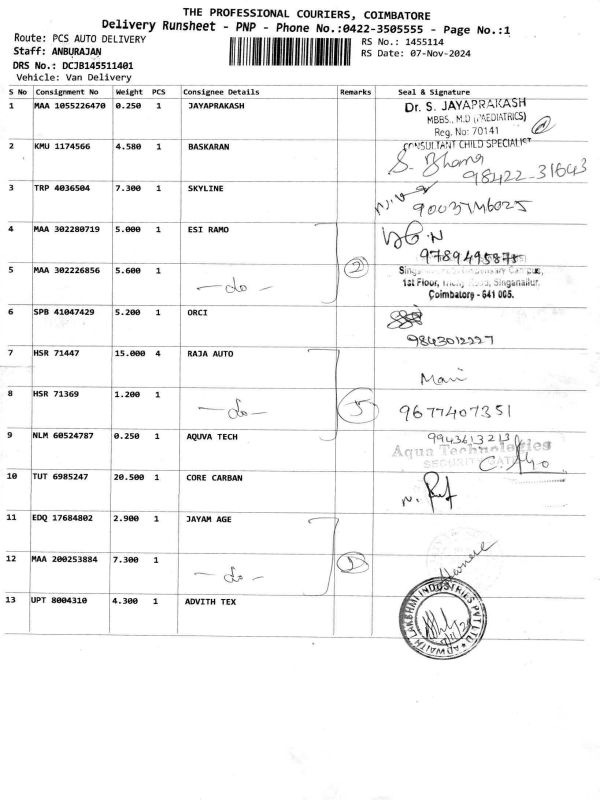 THE PROFESSIONAL COURIERS, COIMBATORE
Delivery Runsheet - PNP - Phone No.:0422-3505555 - Page No.:1
Route: PCS AUTO DELIVERY
RS No.: 1455114
Staff: ANBURAJAN
RS Date: 07-Nov-2024
DRS No.: DCJB145511401
Vehicle: Van Delivery
S No Consignment No Weight PCS Consignee Details Remarks Seal & Signature
1 MAA 1055226470 0.250 1 JAYAPRAKASH
Dr. S. JAYAPRAKASH
MBBS., M.D (PAEDIATRICS)
Reg. No: 70141
CONSULTANT CHILD SPECIALIST
2 KMU 1174566 4.580 1 BASKARAN
98422-31643
3 TRP 4036504 7.300 1 SKYLINE
4 MAA 302280719 5.000 1 ESI RAMO
5 MAA 302226856 5.600 1 -do- 2
1st Floor, Road, Singanallur,
Coimbatore - 641 005.
6 SPB 41047429 5.200 1 ORCI
9843012227
7 HSR 71447 15.000 4 RAJA AUTO
Mani
8 HSR 71369 1.200 1 -do- 5
9677407351
9 NLM 60524787 0.250 1 AQUVA TECH
9943613213
Aqua Technologies
SECURITY
10 TUT 6985247 20.500 1 CORE CARBAN
11 EDQ 17684802 2.900 1 JAYAM AGE
12 MAA 200253884 7.300 1 -do-
13 UPT 8004310 4.300 1 ADVITH TEX
ADWAITH LAKSHMI INDUSTRIES PVT LTD